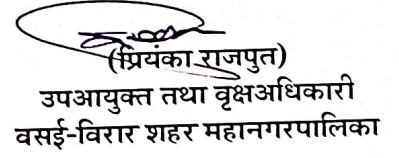 (प्रियंका राजपुत)
उपआयुक्त तथा वृक्षअधिकारी
वसई-विरार शहर महानगरपालिका